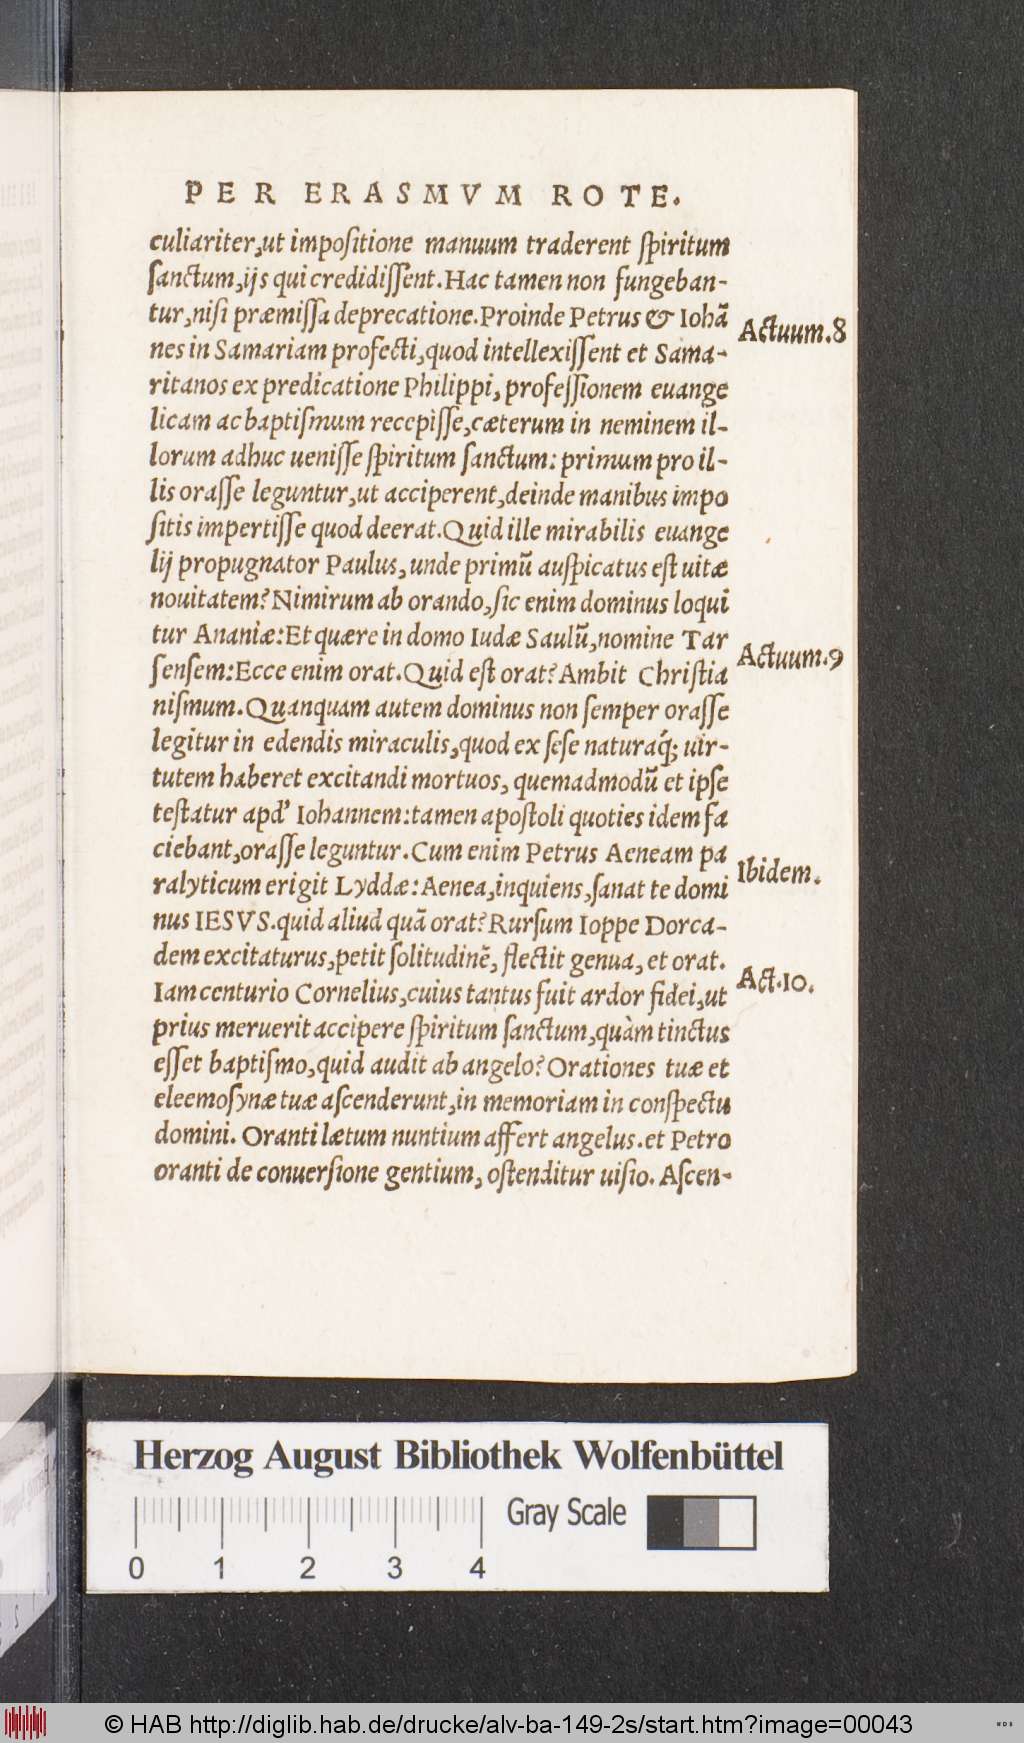 PER ERASMVM ROTE.
culiariter,ut impoſitione manuum traderent ſpiritum
ſanctum,ijs qui credidiſſent.Hac tamen non fungeban-
tur,niſi præmiſſa deprecatione.Proinde Petrus & Iohã
Actuum.8
nes in Samariam profecti,quod intellexiſſent et Sama-
ritanos ex predicatione Philippi, profeſſionem euange
licam ac baptiſmum recepiſſe,cæterum in neminem il-
lorum adhuc ueniſſe ſpiritum ſanctum: primum pro il-
lis oraſſe leguntur,ut acciperent,deinde manibus impo
ſitis impertiſſe quod deerat.Quid ille mirabilis euange
lij propugnator Paulus, unde primũ auſpicatus eſt uitæ
nouitatem? Nimirum ab orando,ſic enim dominus loqui
tur Ananiæ:Et quære in domo Iudæ Saulũ,nomine Tar
Actuum.9
ſenſem:Ecce enim orat.Quid eſt orat? Ambit Chriſtia
niſmum.Quanquam autem dominus non ſemper oraſſe
legitur in edendis miraculis,quod ex ſeſe naturaq́; uir-
tutem haberet excitandi mortuos, quemadmodũ et ipſe
teſtatur apd' Iohannem:tamen apoſtoli quoties idem fa
ciebant,oraſſe leguntur.Cum enim Petrus Aeneam pa
Ibidem.
ralyticum erigit Lyddæ:Aenea,inquiens,ſanat te domi
nus IESVS.quid aliud quã orat? Rurſum Ioppe Dorca-
dem excitaturus,petit ſolitudinẽ, flectit genua, et orat.
Act.10.
Iam centurio Cornelius,cuius tantus fuit ardor fidei,ut
prius meruerit accipere ſpiritum ſanctum,quàm tinctus
eſſet baptiſmo,quid audit ab angelo? Orationes tuæ et
eleemoſynæ tuæ aſcenderunt,in memoriam in conſpectu
domini. Oranti lætum nuntium affert angelus.et Petro
oranti de conuerſione gentium, oſtenditur uiſio. Aſcen-
Herzog August Bibliothek Wolfenbüttel
Gray Scale
0 1 2 3 4
© HAB http://diglib.hab.de/drucke/alv-ba-149-2s/start.htm?image=00043